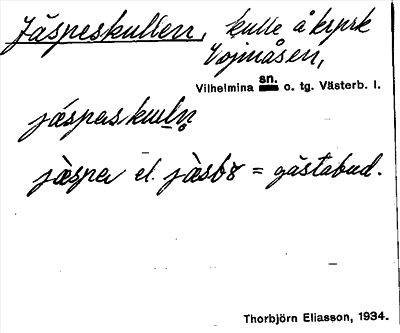 Jäspeskullen, kulle å krprk
Vojmåsen,
Vilhelmina sn. o. tg. Västerb. l.
jäspaskuln
jàspa el. jàsbö = gästabud.
Thorbjörn Eliasson, 1934.